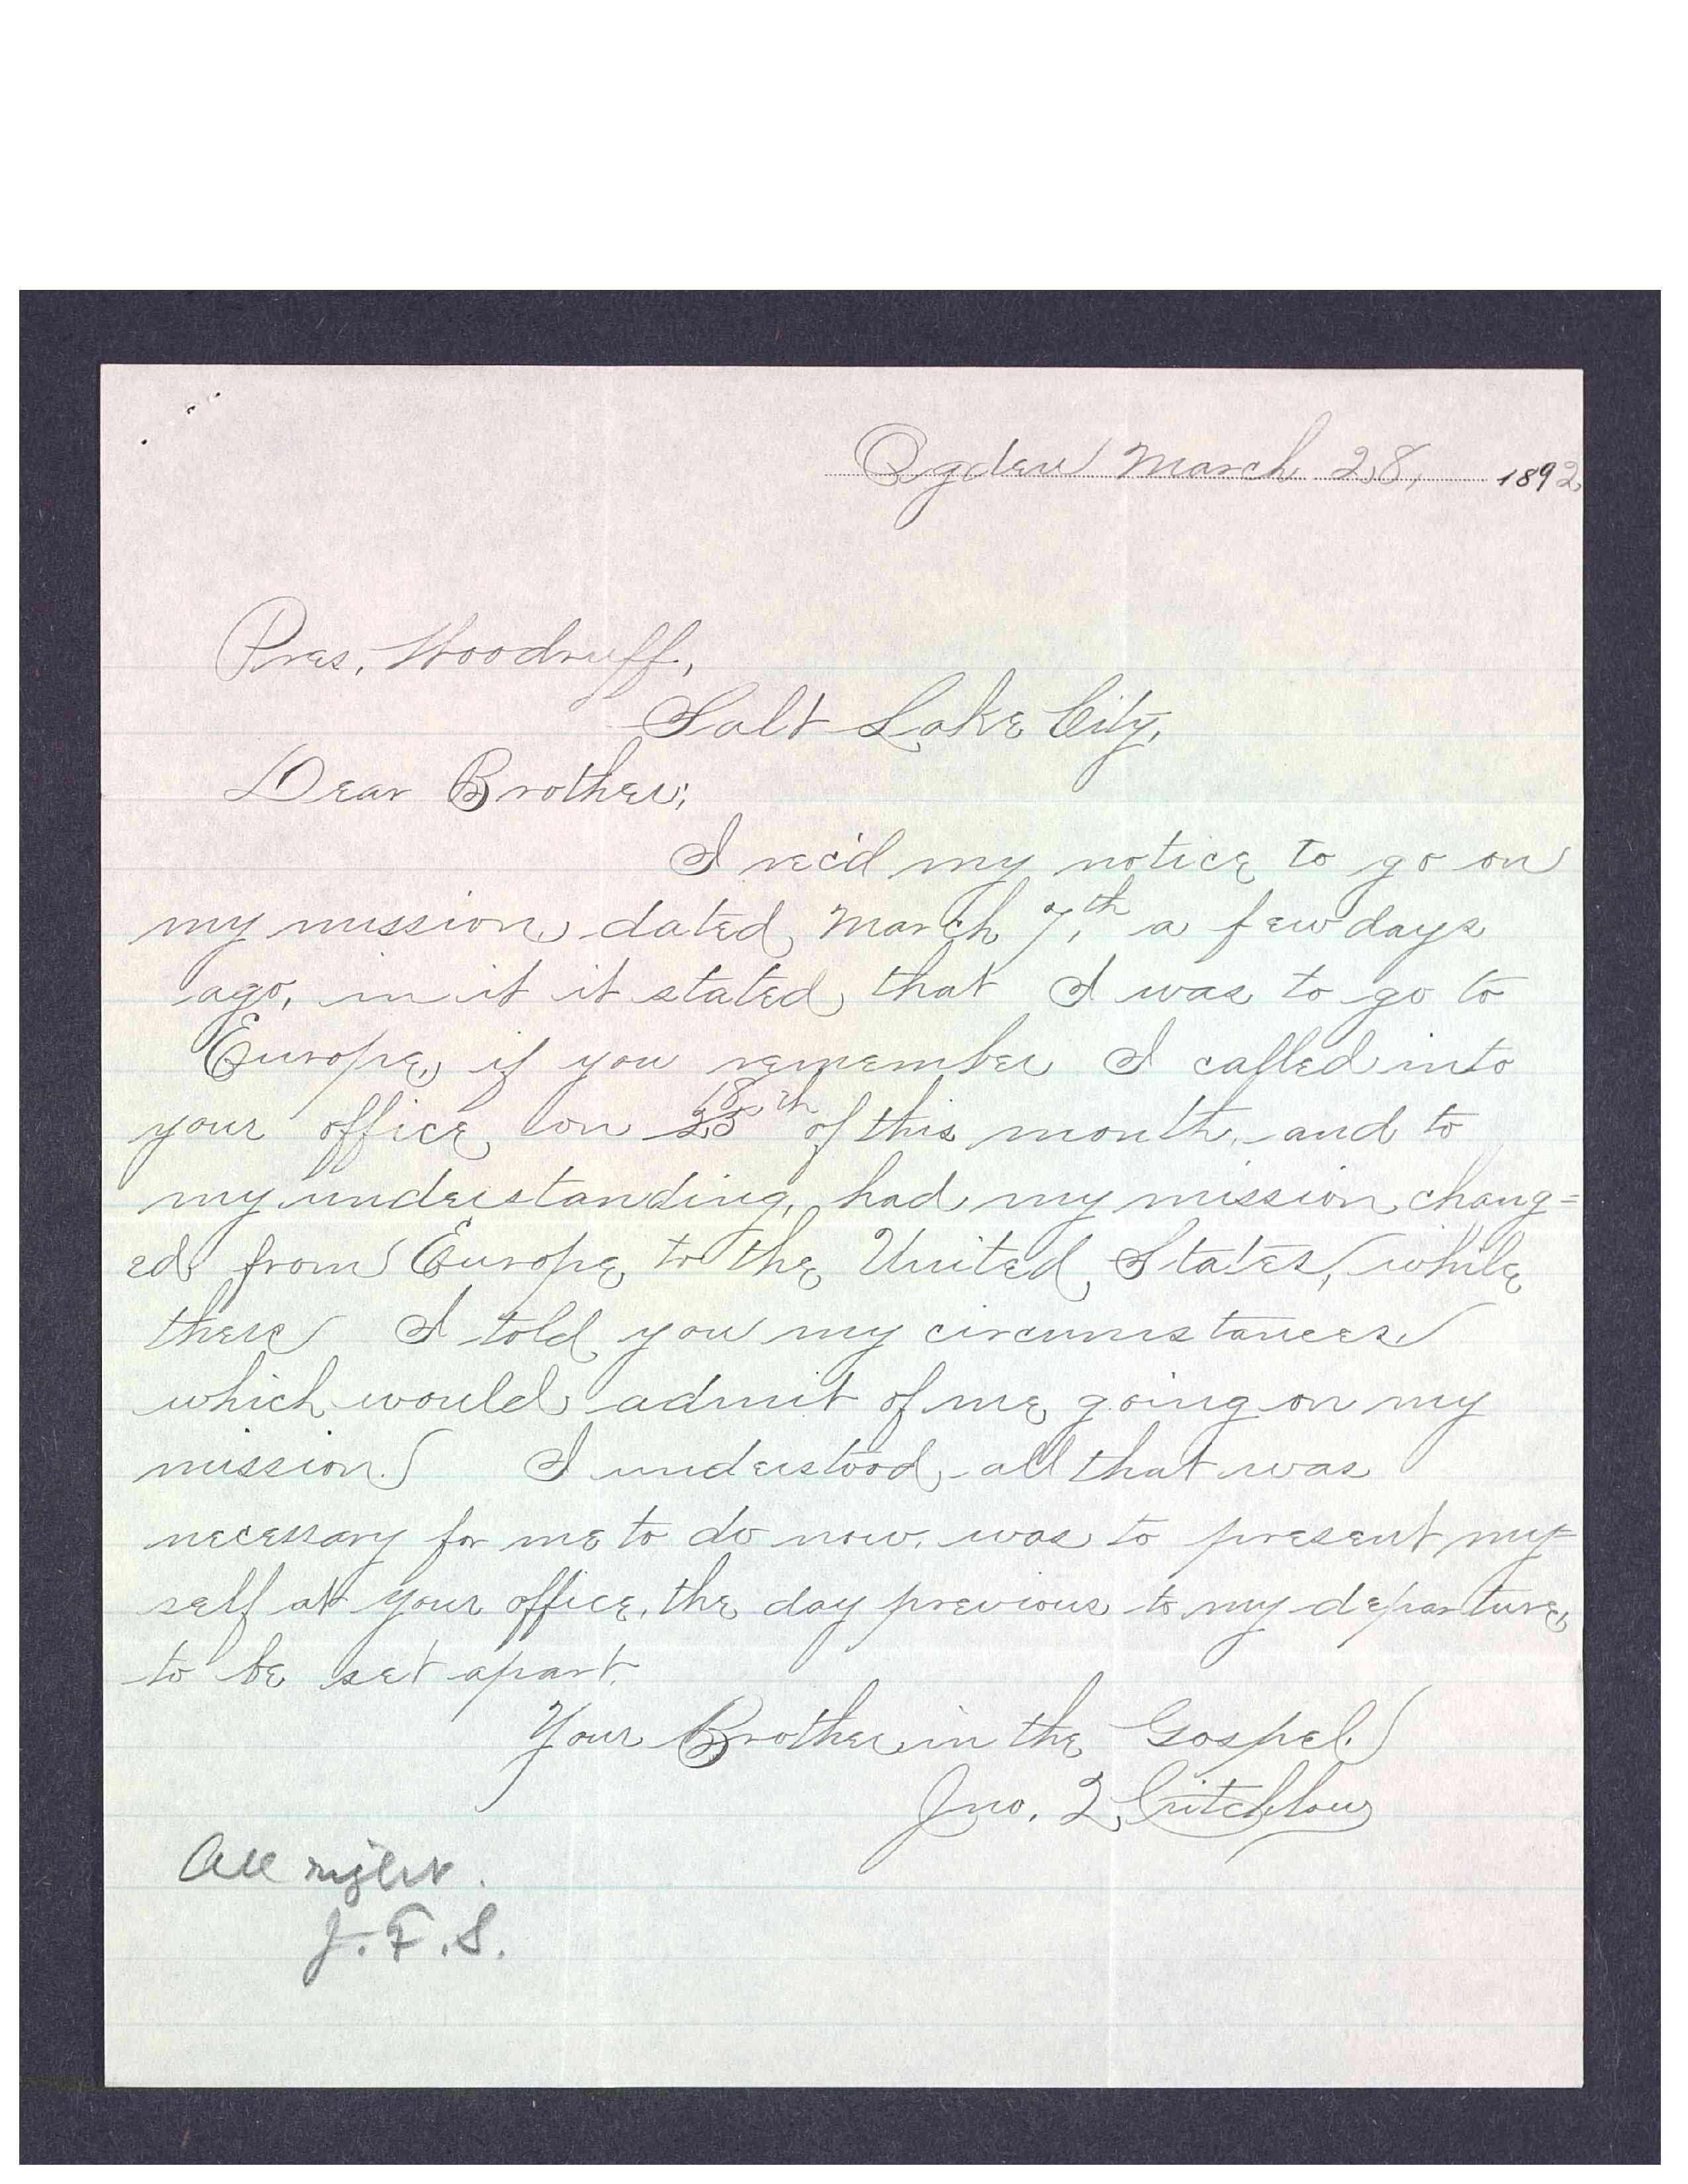 Ogden March 28, 1892
Pres. Woodruff,
Salt Lake City,
Dear Brother;
I rec'd my notice to go on
my mission, dated March 7,th a few days
ago, in it it stated that I was to go to
Europe, if you remember I called into
your office on 23 18th of this month, and to
my understanding, had my mission chang=
ed from Europe to the United States, while
there I told you my circumstances
which would admit of me going on my
mission. I understood all that was
necessary for me to do now, was to present my=
self at your office, the day previous to my departure,
to be set apart.
Your Brother in the Gospel.
Jno. Q. Critchlow
All right.
J. F. S.